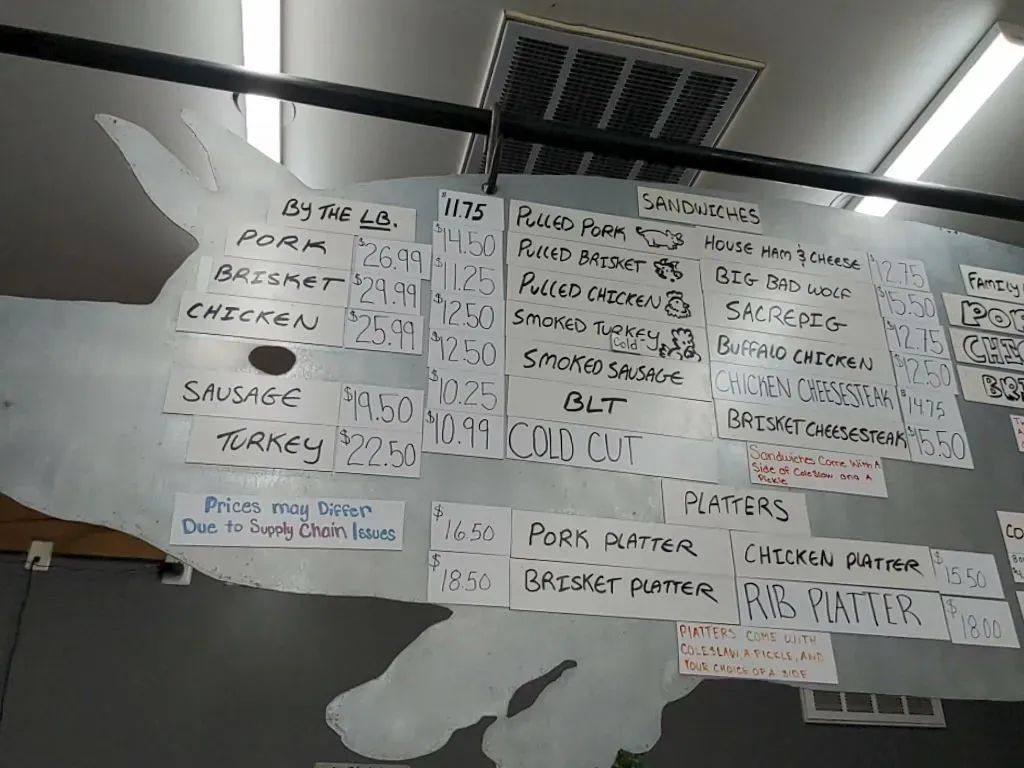 BY THE LB.
PORK $26.99
BRISKET $29.99
CHICKEN $25.99
SAUSAGE $19.50
TURKEY $22.50
Prices may Differ
Due to Supply Chain Issues
SANDWICHES
$11.75 PULLED PORK
$14.50 PULLED BRISKET
$11.25 PULLED CHICKEN
$12.50 SMOKED TURKEY
Cold
$12.50 SMOKED SAUSAGE
$10.25 BLT
$10.99 COLD CUT
HOUSE HAM & CHEESE $12.75
BIG BAD WOLF $15.50
SACREPIG $12.75
BUFFALO CHICKEN $12.50
CHICKEN CHEESESTEAK $14.75
BRISKET CHEESESTEAK $15.50
Sandwiches Come With A
Side of Coleslaw and A
Pickle
PLATTERS
$16.50 PORK PLATTER
$18.50 BRISKET PLATTER
CHICKEN PLATTER $15.50
RIB PLATTER $18.00
PLATTERS COME WITH
COLESLAW, A PICKLE, AND
YOUR CHOICE OF A SIDE
FAMILY